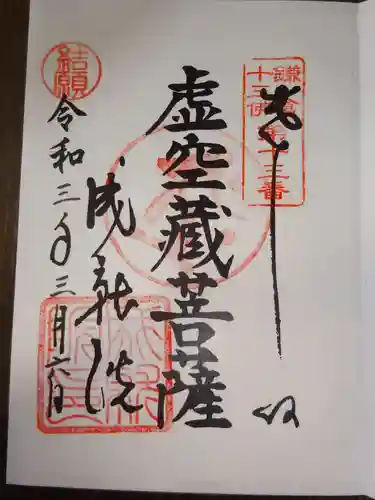 奉拝
鎌倉
十三佛第十三番
虚空藏菩薩
成就院
結願
令和三年三月六日